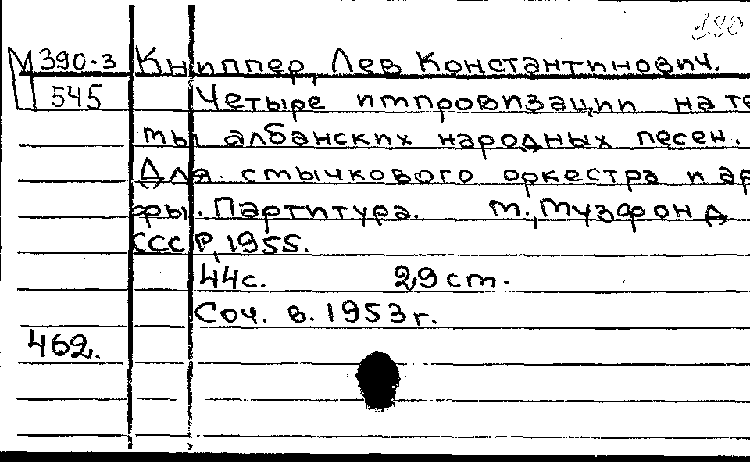 190
М 390-3 Книппер, Лев Константинович.
545 Четыре импровизации на те
мы албанских народных песен.
Для смычкового оркестра и ар
фы. Партитура. М., Музфонд
СССР, 1955.
44с. 29 см.
Соч. в. 1953 г.
462.